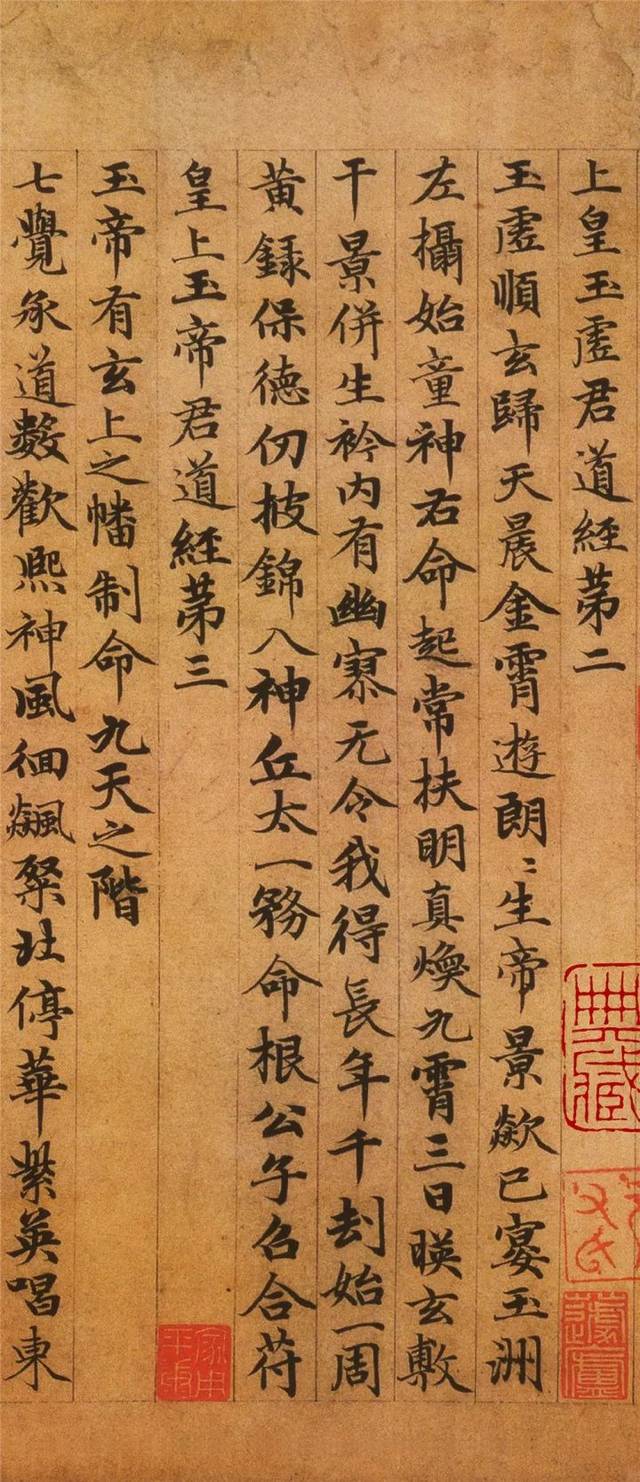 上皇玉虛君道經第二
玉虛順玄歸天晨金霄遊朗〻生帝景歘已宴玉洲
左攝始童神右命起常扶明真煥九霄三日暎玄敷
千景併生衿内有幽寥无令我得長年千劫始一周
黄録保德仞披錦入神丘太一務命根公子名合符
皇上玉帝君道經第三
玉帝有玄上之幡制命九天之階
七覺承道數歡熙神風徊飈粲停華紫英唱東
典藏